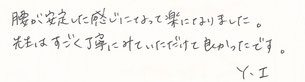 腰が安定した感じになって楽になりました。
先生はすごく丁寧にみていただけて良かったです。
Y.I